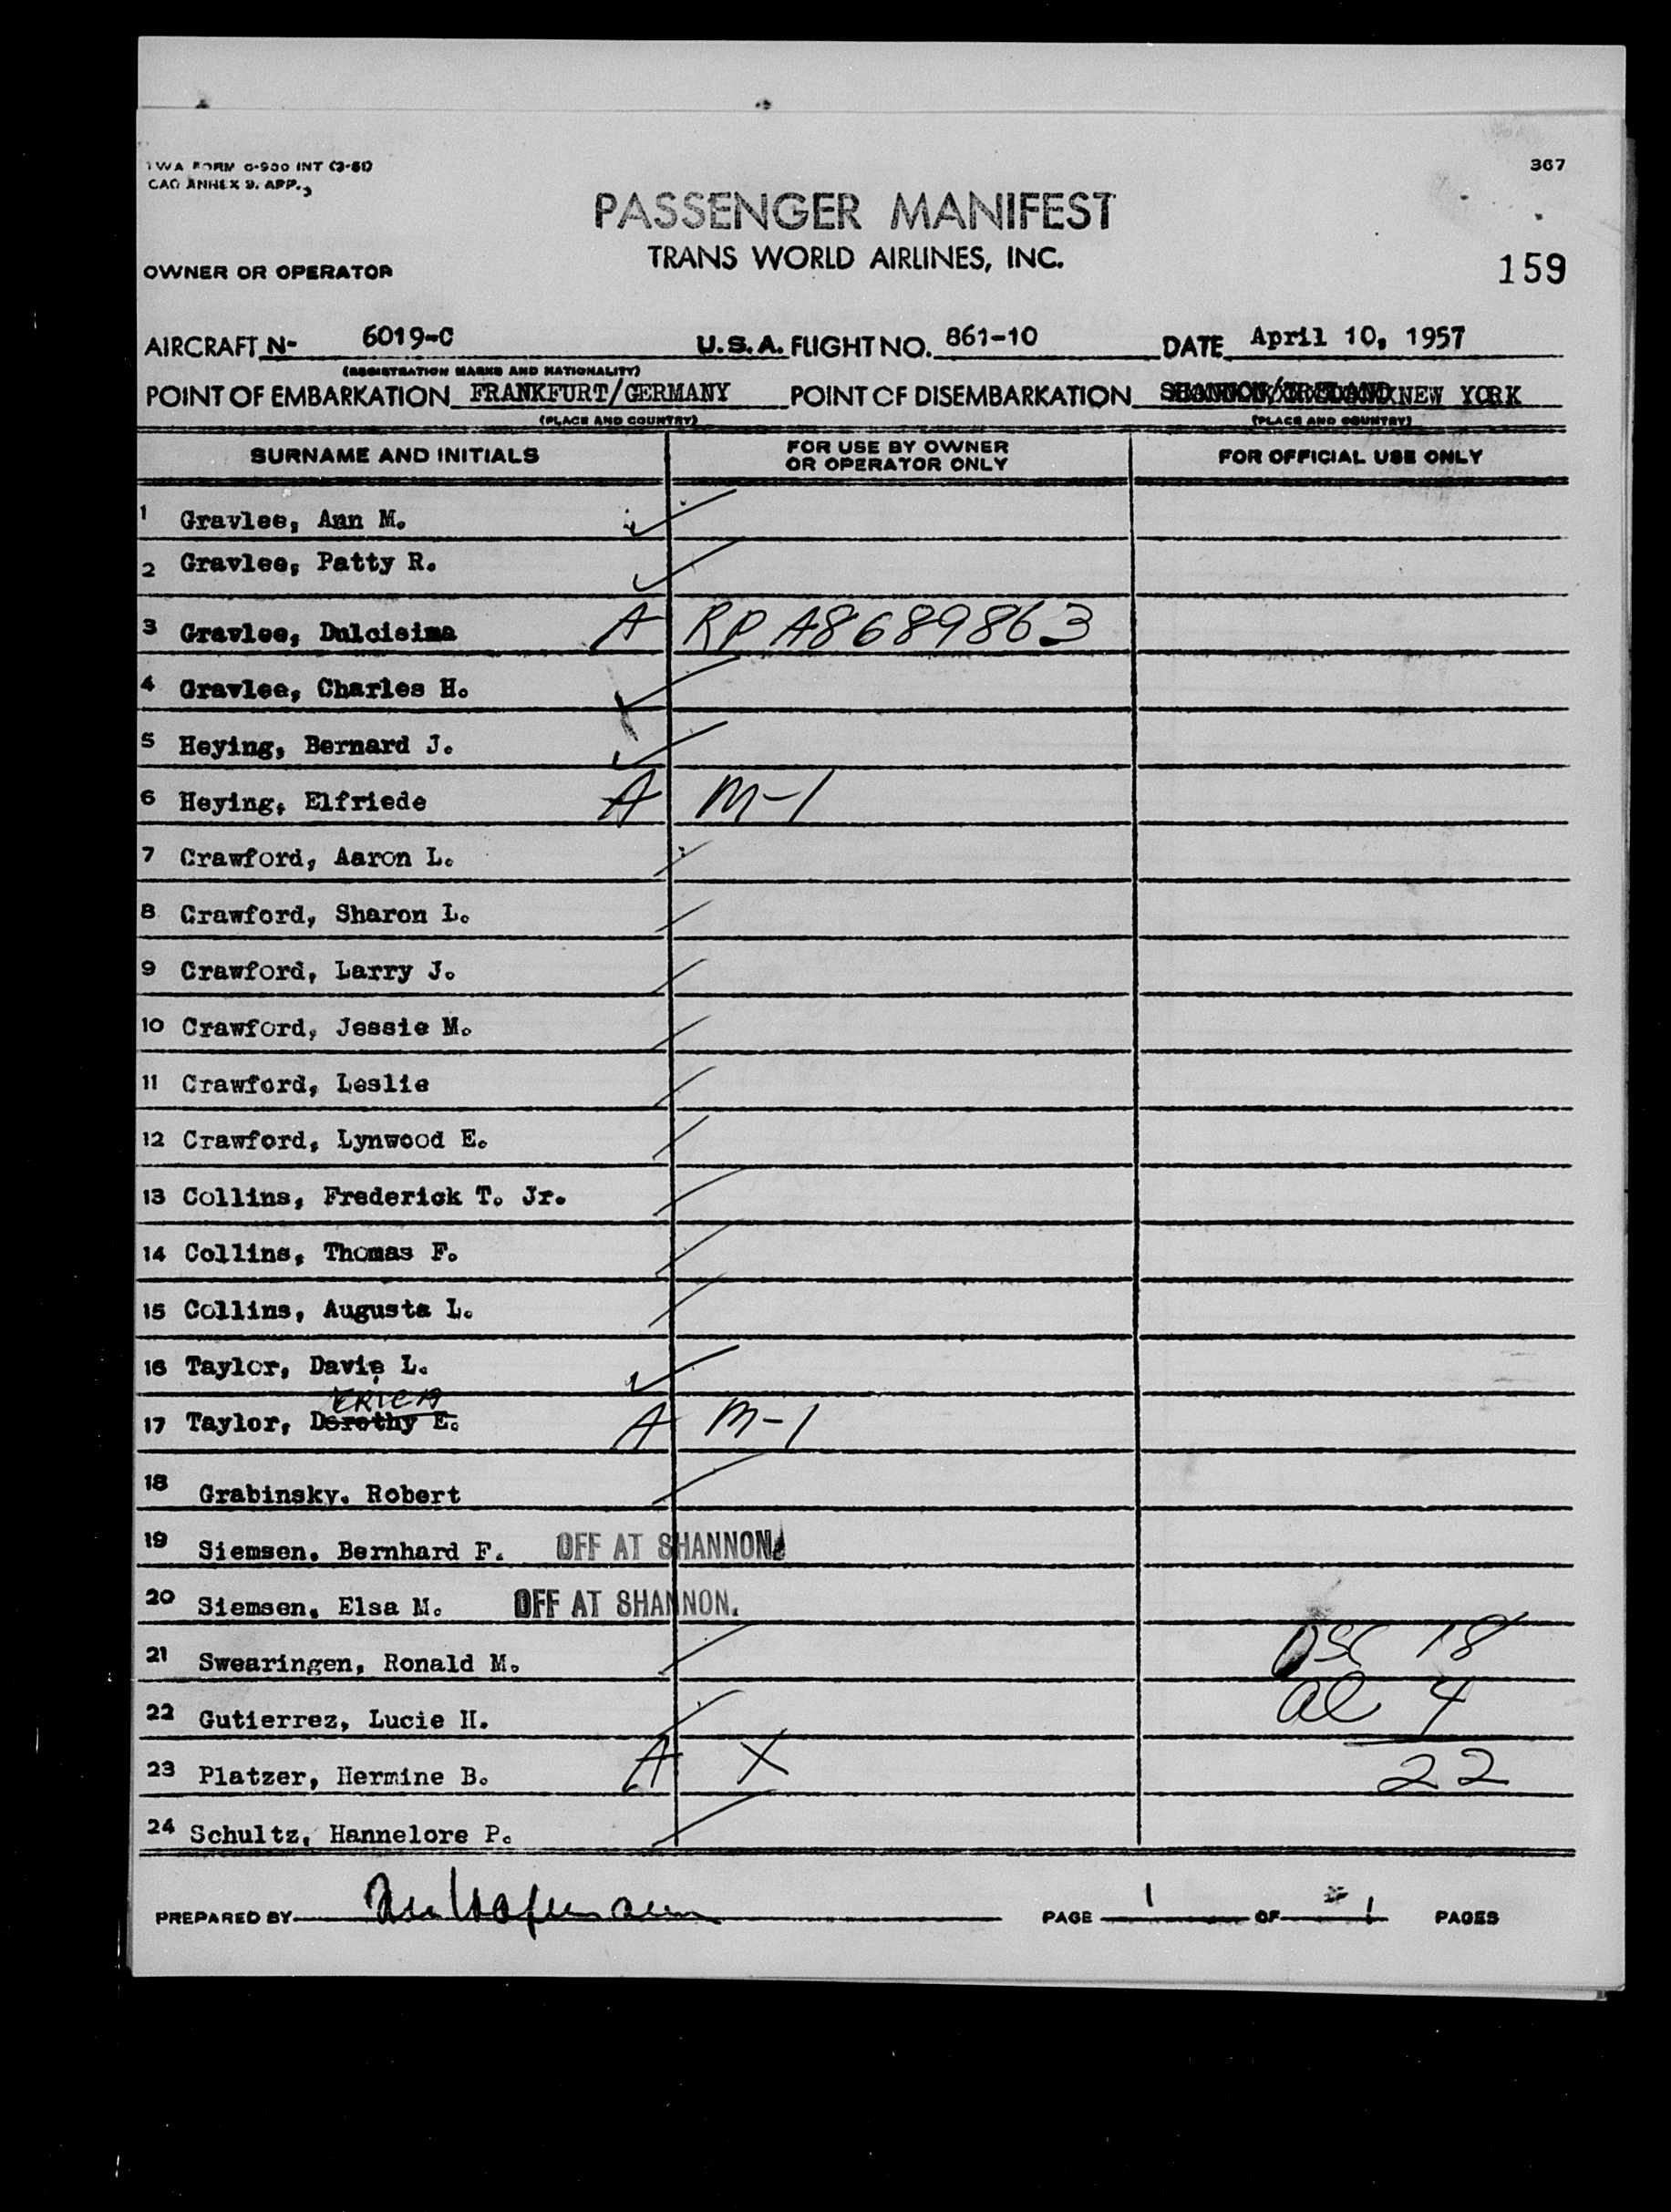 TWA FORM 0-900 INT (3-51)
CAO ANNEX 9. APP. 3
367
PASSENGER MANIFEST
TRANS WORLD AIRLINES, INC.
OWNER OR OPERATOR
159
AIRCRAFT N- 6019-C U.S.A. FLIGHT NO. 861-10 DATE April 10, 1957
(REGISTRATION MARKS AND NATIONALITY)
POINT OF EMBARKATION FRANKFURT/GERMANY POINT OF DISEMBARKATION SHANNON/IRELAND NEW YORK
(PLACE AND COUNTRY) (PLACE AND COUNTRY)
SURNAME AND INITIALS FOR USE BY OWNER OR OPERATOR ONLY FOR OFFICIAL USE ONLY
1 Gravlee, Ann M.
2 Gravlee, Patty R.
3 Gravlee, Dulcisima A RP A8689863
4 Gravlee, Charles H.
5 Heying, Bernard J.
6 Heying, Elfriede A M-1
7 Crawford, Aaron L.
8 Crawford, Sharon L.
9 Crawford, Larry J.
10 Crawford, Jessie M.
11 Crawford, Leslie
12 Crawford, Lynwood E.
13 Collins, Frederick T. Jr.
14 Collins, Thomas F.
15 Collins, Augusta L.
16 Taylor, Davie L.
ERICA
17 Taylor, Dorothy E. A M-1
18 Grabinsky, Robert
19 Siemsen, Bernhard F. OFF AT SHANNON.
20 Siemsen, Elsa M. OFF AT SHANNON.
21 Swearingen, Ronald M. USC 18
22 Gutierrez, Lucie H. al 4
23 Platzer, Hermine B. A X 22
24 Schultz, Hannelore P.
PREPARED BY PAGE 1 OF 1 PAGES